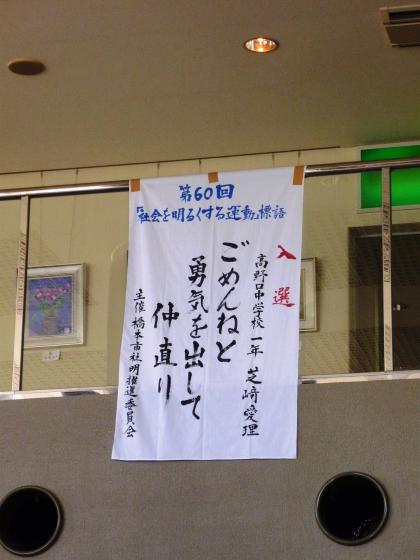 第60回
「社会を明るくする運動」標語
入選
高野口中学校一年 芝﨑愛理
ごめんねと
勇気を出して
仲直り
主催 橋本市社明推進委員会